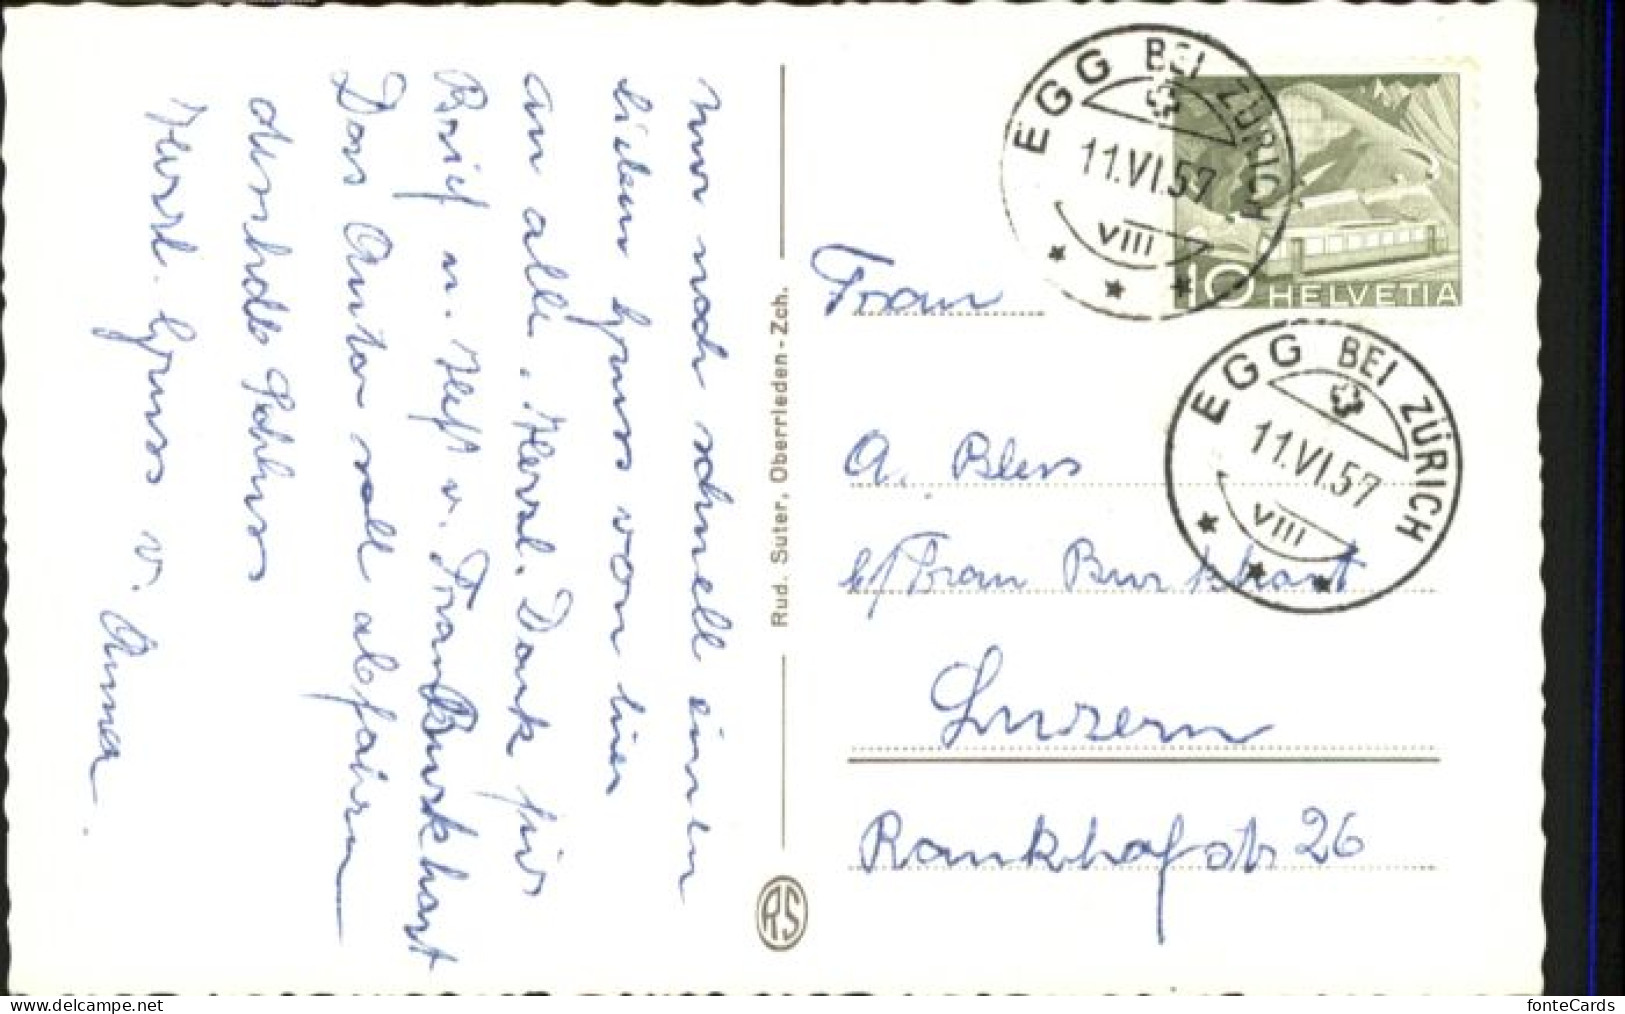 nur noch schnell einen
lieben Gruss von hier
an alle. Herzl. Dank für
Brief u. Heft v. Frau Burkhart
Dass Anton soll abfairn
Herzl. Gruss v. Anna.
Rud. Suter, Oberrieden-Zch.
RS
EGG BEI ZÜRICH
11.VI.57
VIII
10 HELVETIA
EGG BEI ZÜRICH
11.VI.57
VIII
Frau
A. Bless
b/ Frau Burkhart
Luzern
Rankhofstr 26
delcampe.net
fonteCards